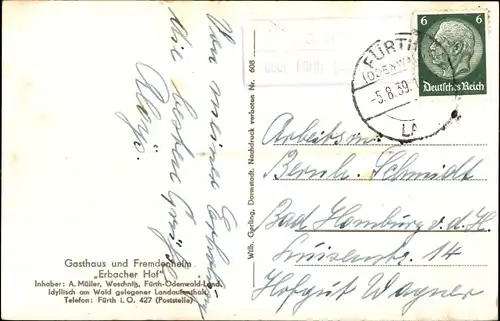 Von meiner Erholung
die besten Grüße
Alois.
Gasthaus und Fremdenheim
„Erbacher Hof"
Inhaber: A. Müller, Weschnitz, Fürth-Odenwald-Land.
Idyllisch am Wald gelegener Landaufenthalt
Telefon: Fürth i. O. 427 (Poststelle)
Wilh. Gerling, Darmstadt. Nachdruck verboten Nr. 608
über Fürth
FÜRTH
(ODENWALD)
-5.8.39.
LAND
6 6
Deutsches Reich
Arbeitsm.
Bernh. Schmidt
Bad Homburg v. d. H.
Luisenstr. 14
Hofgut Wagner